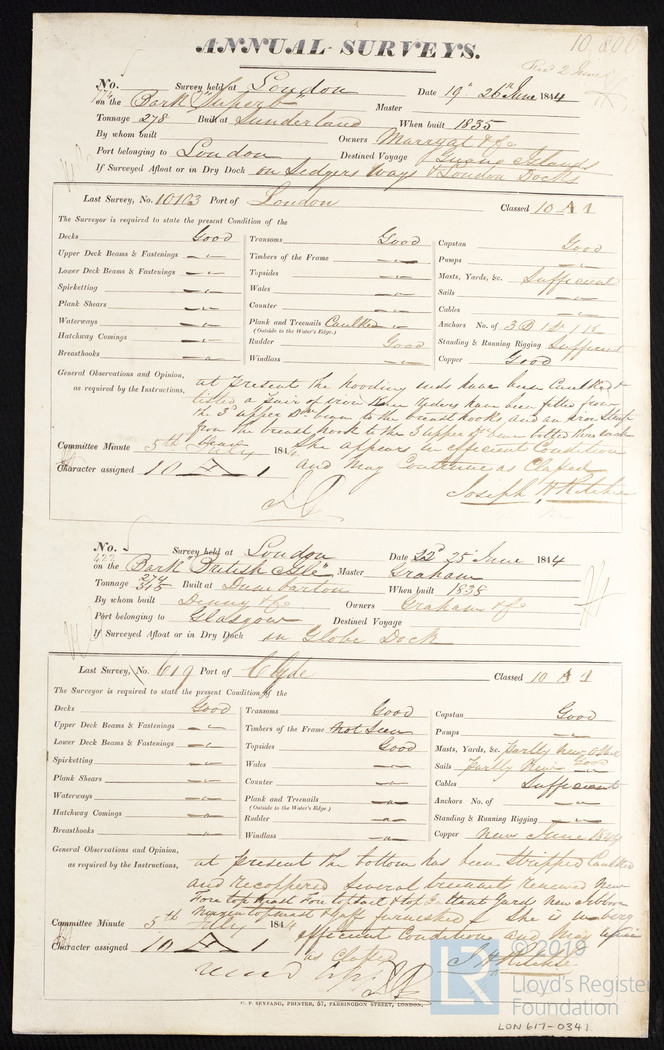 10,800
ANNUAL SURVEYS.
No. 774 Survey held at London Date 19th 26th June 1844
on the Bark "Superb" Master
Tonnage 278 Built at Sunderland When built 1835
By whom built Owners Marryat & Co
Port belonging to London Destined Voyage Islands
If Surveyed Afloat or in Dry Dock on Ledgers Ways & London Docks
Last Survey, No. 10103 Port of London Classed 10 A 1
The Surveyor is required to state the present Condition of the
Decks Good Transoms Good Capstan Good
Upper Deck Beams & Fastenings Timbers of the Frame Pumps
Lower Deck Beams & Fastenings Topsides Masts, Yards, &c. Sufficient
Spirketting Wales Sails
Plank Shears Counter Cables
Waterways Plank and Treenails Caulked Anchors No. of 3 B 1 S 1 K
(Outside to the Water's Edge.)
Hatchway Comings Rudder Good Standing & Running Rigging Sufficient
Breasthooks Windlass Copper Good
General Observations and Opinion, as required by the Instructions,
at present the hooding ends have been Caulked &
a pair of iron riders have been fitted from
the 3d upper to the breast hooks and an iron
from the breast hook to the 3 upper bolted
She appears in efficient Condition
and May Continue as Classed
Committee Minute 5th July 1844
Character assigned 10 A 1
Joseph H Ritchie
No. 422 Survey held at London Date 22d 25 June 1844
on the Bark "British Isle" Master Graham
Tonnage 274 315 Built at Dumbarton When built 1838
By whom built Denny & Co Owners Graham & Co
Port belonging to Glasgow Destined Voyage
If Surveyed Afloat or in Dry Dock in Globe Dock
Last Survey, No. 619 Port of Clyde Classed 10 A 1
The Surveyor is required to state the present Condition of the
Decks Good Transoms Good Capstan Good
Upper Deck Beams & Fastenings Timbers of the Frame Not Seen Pumps
Lower Deck Beams & Fastenings Topsides Good Masts, Yards, &c. Partly New
Spirketting Wales Sails Partly New Good
Plank Shears Counter Cables Sufficient
Waterways Plank and Treenails Anchors No. of
(Outside to the Water's Edge.)
Hatchway Comings Rudder Standing & Running Rigging
Breasthooks Windlass Copper New June 1844
General Observations and Opinion, as required by the Instructions,
at present the bottom has been Stripped Caulked
and recoppered Several treenails renewed New
Fore top mast Fore topsail & top Yard New
Mizen topmast & Gaff furnished She is in
efficient Condition and May
as Classed
Committee Minute 5th July 1844
Character assigned 10 A 1
J H Ritchie
C. F. SEYFANG, PRINTER, 57, FARRINGDON STREET, LONDON.
© 2019
LR
Lloyd's Register
Foundation
LON 617-0341